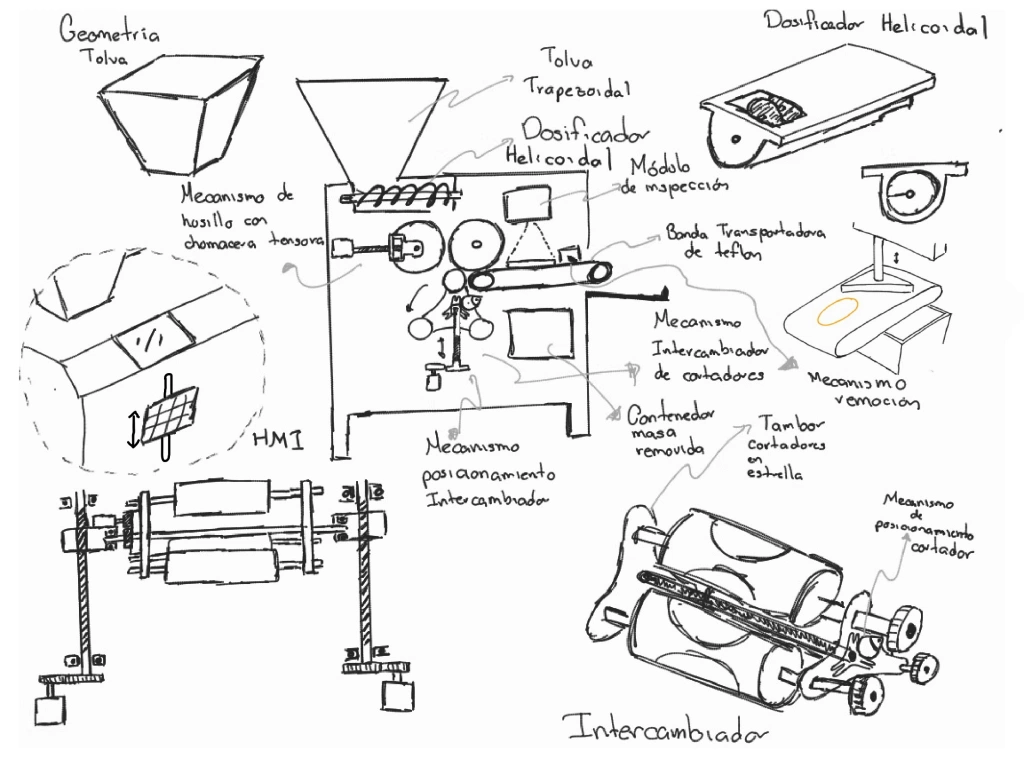 Geometria
Tolva
Tolva
Trapezoidal
Dosificador Helicoidal
Dosificador
Helicoidal
Módulo
de inspección
Mecanismo de
husillo con
chomacera tensora
Banda Transportadora
de teflon
Mecanismo
Intercambiador
de cortadores
Mecanismo
remoción
HMI
Mecanismo
posicionamiento
Intercambiador
Contenedor
masa
removida
Tambor
cortadores
en
estrella
Mecanismo
de
posicionamiento
cortador
Intercambiador